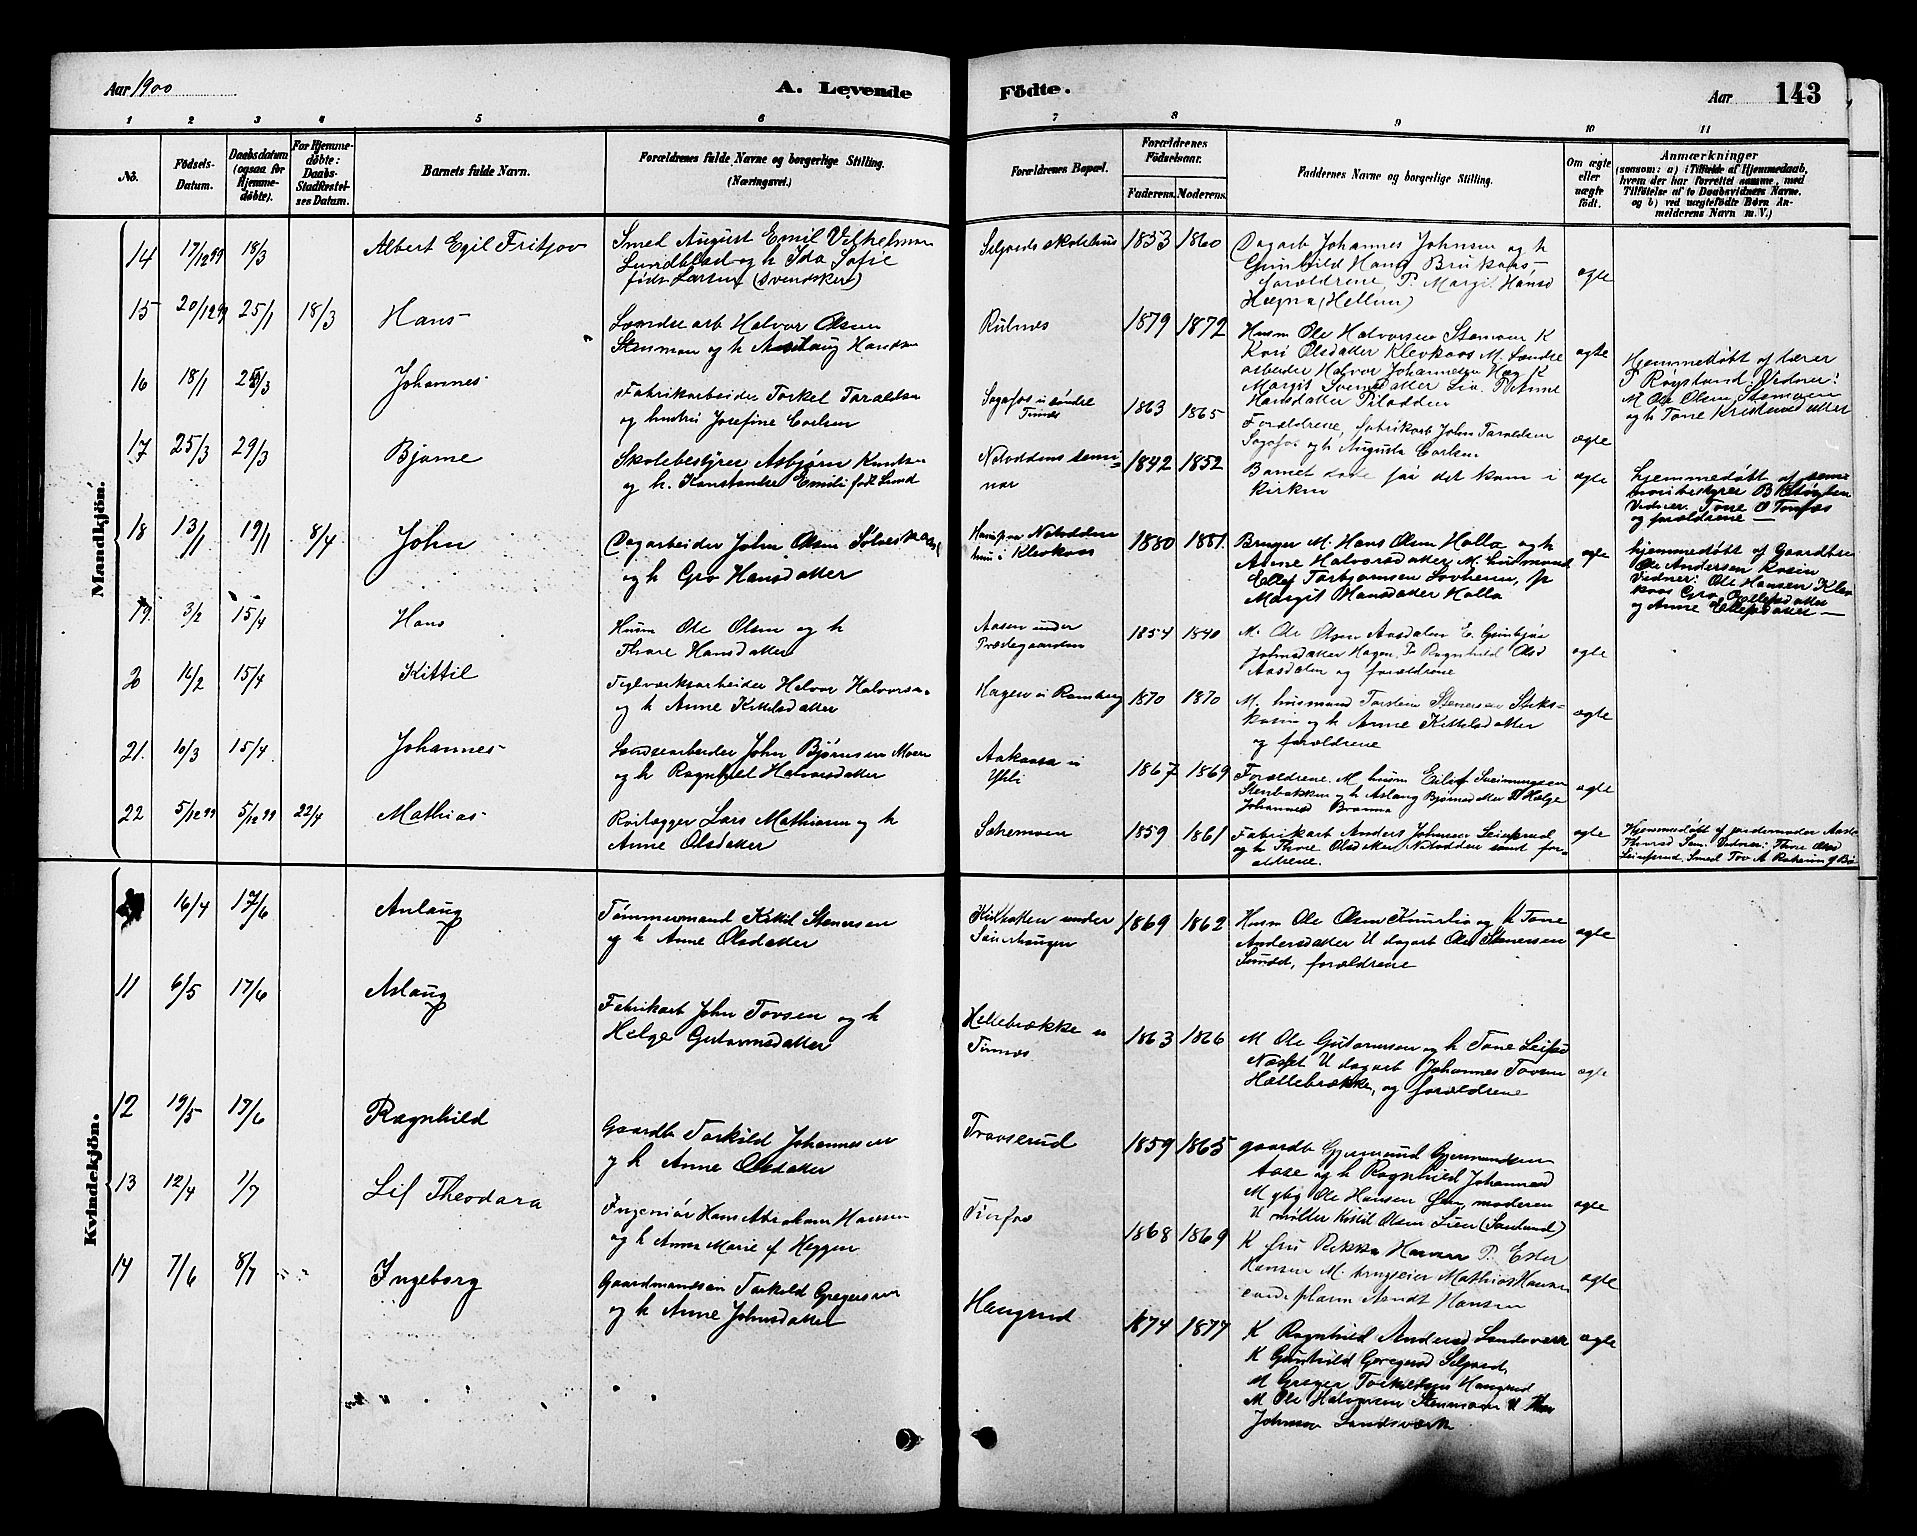 Aar 1900
A. Levende
Födte.
Aar
143
1 2 3 4 5 6 7 8 9 10 11
No.
Fødsels-Datum.
Daabsdatum (ogsaa for Hjemmedøbte).
For Hjemmedøbte: Daabs-Stadfæstelses Datum.
Barnets fulde Navn.
Forældrenes fulde Navne og borgerlige Stilling. (Næringsvei.)
Forældrenes Bopæl.
Forældrenes Fødselsaar.
Faderens. Moderens.
Faddernes Navne og borgerlige Stilling.
Om ægte eller uægte født.
Anmærkninger
(saasom: a) i Tilfælde af Hjemmedaab, hvem der har forrettet samme, med Tilføielse af to Daabsvidners Navne, og b) ved uægtefødte Børn Anmelderens Navn m.V.)
Mandkjön.
14 17/12 99 18/3 Albert Egil Fritjov
Smed August Emil Vilhelm
Lundblad og h Ida Sofie
født Larsen (svensker)
Selgords skolehus 1853 1860
Dagarb Johannes Johnsen og h
Gunhild Hans Brukaas
forældrene, P. Margit Hansd
Hægna (Hellen)
ægte
15 20/12 99 25/1 18/3 Hans
Søndre arb Halvor Olsen
Stenmoen og h Aslaug Hansd
Rulnæs 1879 1872
Husm Ole Halvorsen Stemoen K
Kari Olsdatter Klevkaas M. Søndre
arbeider Halvor Johannesen Hæg K
Margit Svensdatter Lia P Anne
Hansdatter Pilodden
ægte
Hjemmedøbt af lærer
P Rogstand. Vidner:
M Ole Olsen Stemoen
og h Tone Kristensdatter
16 18/1 25/3 Johannes
Fabrikarbeider Torkel Taraldsen
og hustru Josefine Carlsen
Sagafos i søndre
Tinnes
1863 1865
Forældrene, fabrikarb John Taraldsen
Sagafos og h Augusta Carlsen
ægte
17 25/3 29/3 Bjarne
Skolebestyrer Asbjørn Knudsen
og h. Konstanse Emilie født Lund
Notoddens semi-
nar
1842 1852
Barnet døde før det kom i
kirken
ægte
hjemmedøbt af semi
naribestyrer B Støylen
Vidner. Tone O Tinfos
og forældrene
18 13/1 19/1 8/4 John
Dagarbeider John Olsen
og h Gro Hansdatter
Notodden
hus i Klevkaas
1880 1881
Bruger M. Hans Olsen Holla og h
Anne Halvorsdatter M. husmand
Ellef Torbjørnsen Lovheim, P
Margit Hansdatter Holla
ægte
hjemmedøbt af Gaardbr
Ole Andersen Kasin
Vidner: Ole Hansen Klev
kaas Gro Pellefsdatter
og Anne Ellefsdatter
19. 3/2 15/4 Hans
Husm Ole Olsen og h
Thore Hansdatter
Aasen under
Præstegaarden
1854 1840
M. Ole Olsen Aasdalen E. Gunbjør
Johnsdatter Hagen. P Ragnhild Olsd
Aasdalen og forældrene
ægte
20 14/2 15/4 Kittil
Teglværksarbeider Halvor Halvorsen
og h Anne Kittelsdatter
Hagen i Ramberg 1870 1870
M. husmand Torstein Stenersen
og h Anne Kittelsdatter
og forældrene
ægte
21. 10/3 15/4 Johannes
Søndrearbeider John Bjørnsen Moen
og h Ragnhild Halvorsdatter
Aakaasa i
Yli
1867 1869
Forældrene. M husm Eilef Sveinungsen
Stenbakken og h Aslaug Bjørnsdatter P Helge
Johannesd
ægte
22 5/12 99 5/12 99 22/4 Mathias
Rørlægger Lars Mathisen og h
Anne Olsdatter
Sætremoen 1859 1861
Fabrikarb Anders Johnsen Seierud
og h Thore Olsdatter Notodden samt for-
ældrene.
ægte
Hjemmedøbt af jordemoder Aase
Thorsd Sem. Vidner: Thore Olsd
Kvindekjön.
16/4 17/6 Aslaug
Tømmermand Kittil Stenersen
og h Anne Olsdatter
under
Seierhaugen
1869 1862
Husm Ole Olsen Kaurlia og h Tone
Andersdatter U dagarb Ole Stenersen
Semd, forældrene
ægte
11 6/5 17/6 Aslaug
Fabrikarb John Tovsen og h
Helge Gutormsdatter
Hellebrække i
Tinnes
1863 1866
M Ole Gutormsen og h Tone Leifsd
Næset U dagarb Johannes Tovsen
Hællebrække, og forældrene
ægte
12 19/5 17/6 Ragnhild
Gaardbr Torkild Johannesen
og h Anne Olsdatter
Traaserud 1859 1865
gaardbr Gjermund Gjermundsen
Aase og h Ragnhild Johannesd
M gbg Ole Hansen Sem, moderen
U møller Kittil Olsen Lien (Sanlund)
ægte
13 12/4 1/7 Lif Theodora
Ingeniør Hans Abraham Hansen
og h Anna Marie f Heggen
Tinfos 1868 1869
K fru Rikka Hansen P. Ester
Hansen M. brugseier Mathias Hansen
cand pharm Arndt Hansen
ægte
14 7/6 8/7 Ingeborg
Gaardmandssøn Torkild Gregersen
og h Anne Johnsdatter
Haugrud 1874 1877
K Ragnhild Andersd Landsverk
K Gunhild Gregersd Selgord,
M Greger Torkildsen Haugrud
M Ole Halvorsen Stenmoen U
Johnsen Landsværk
ægte